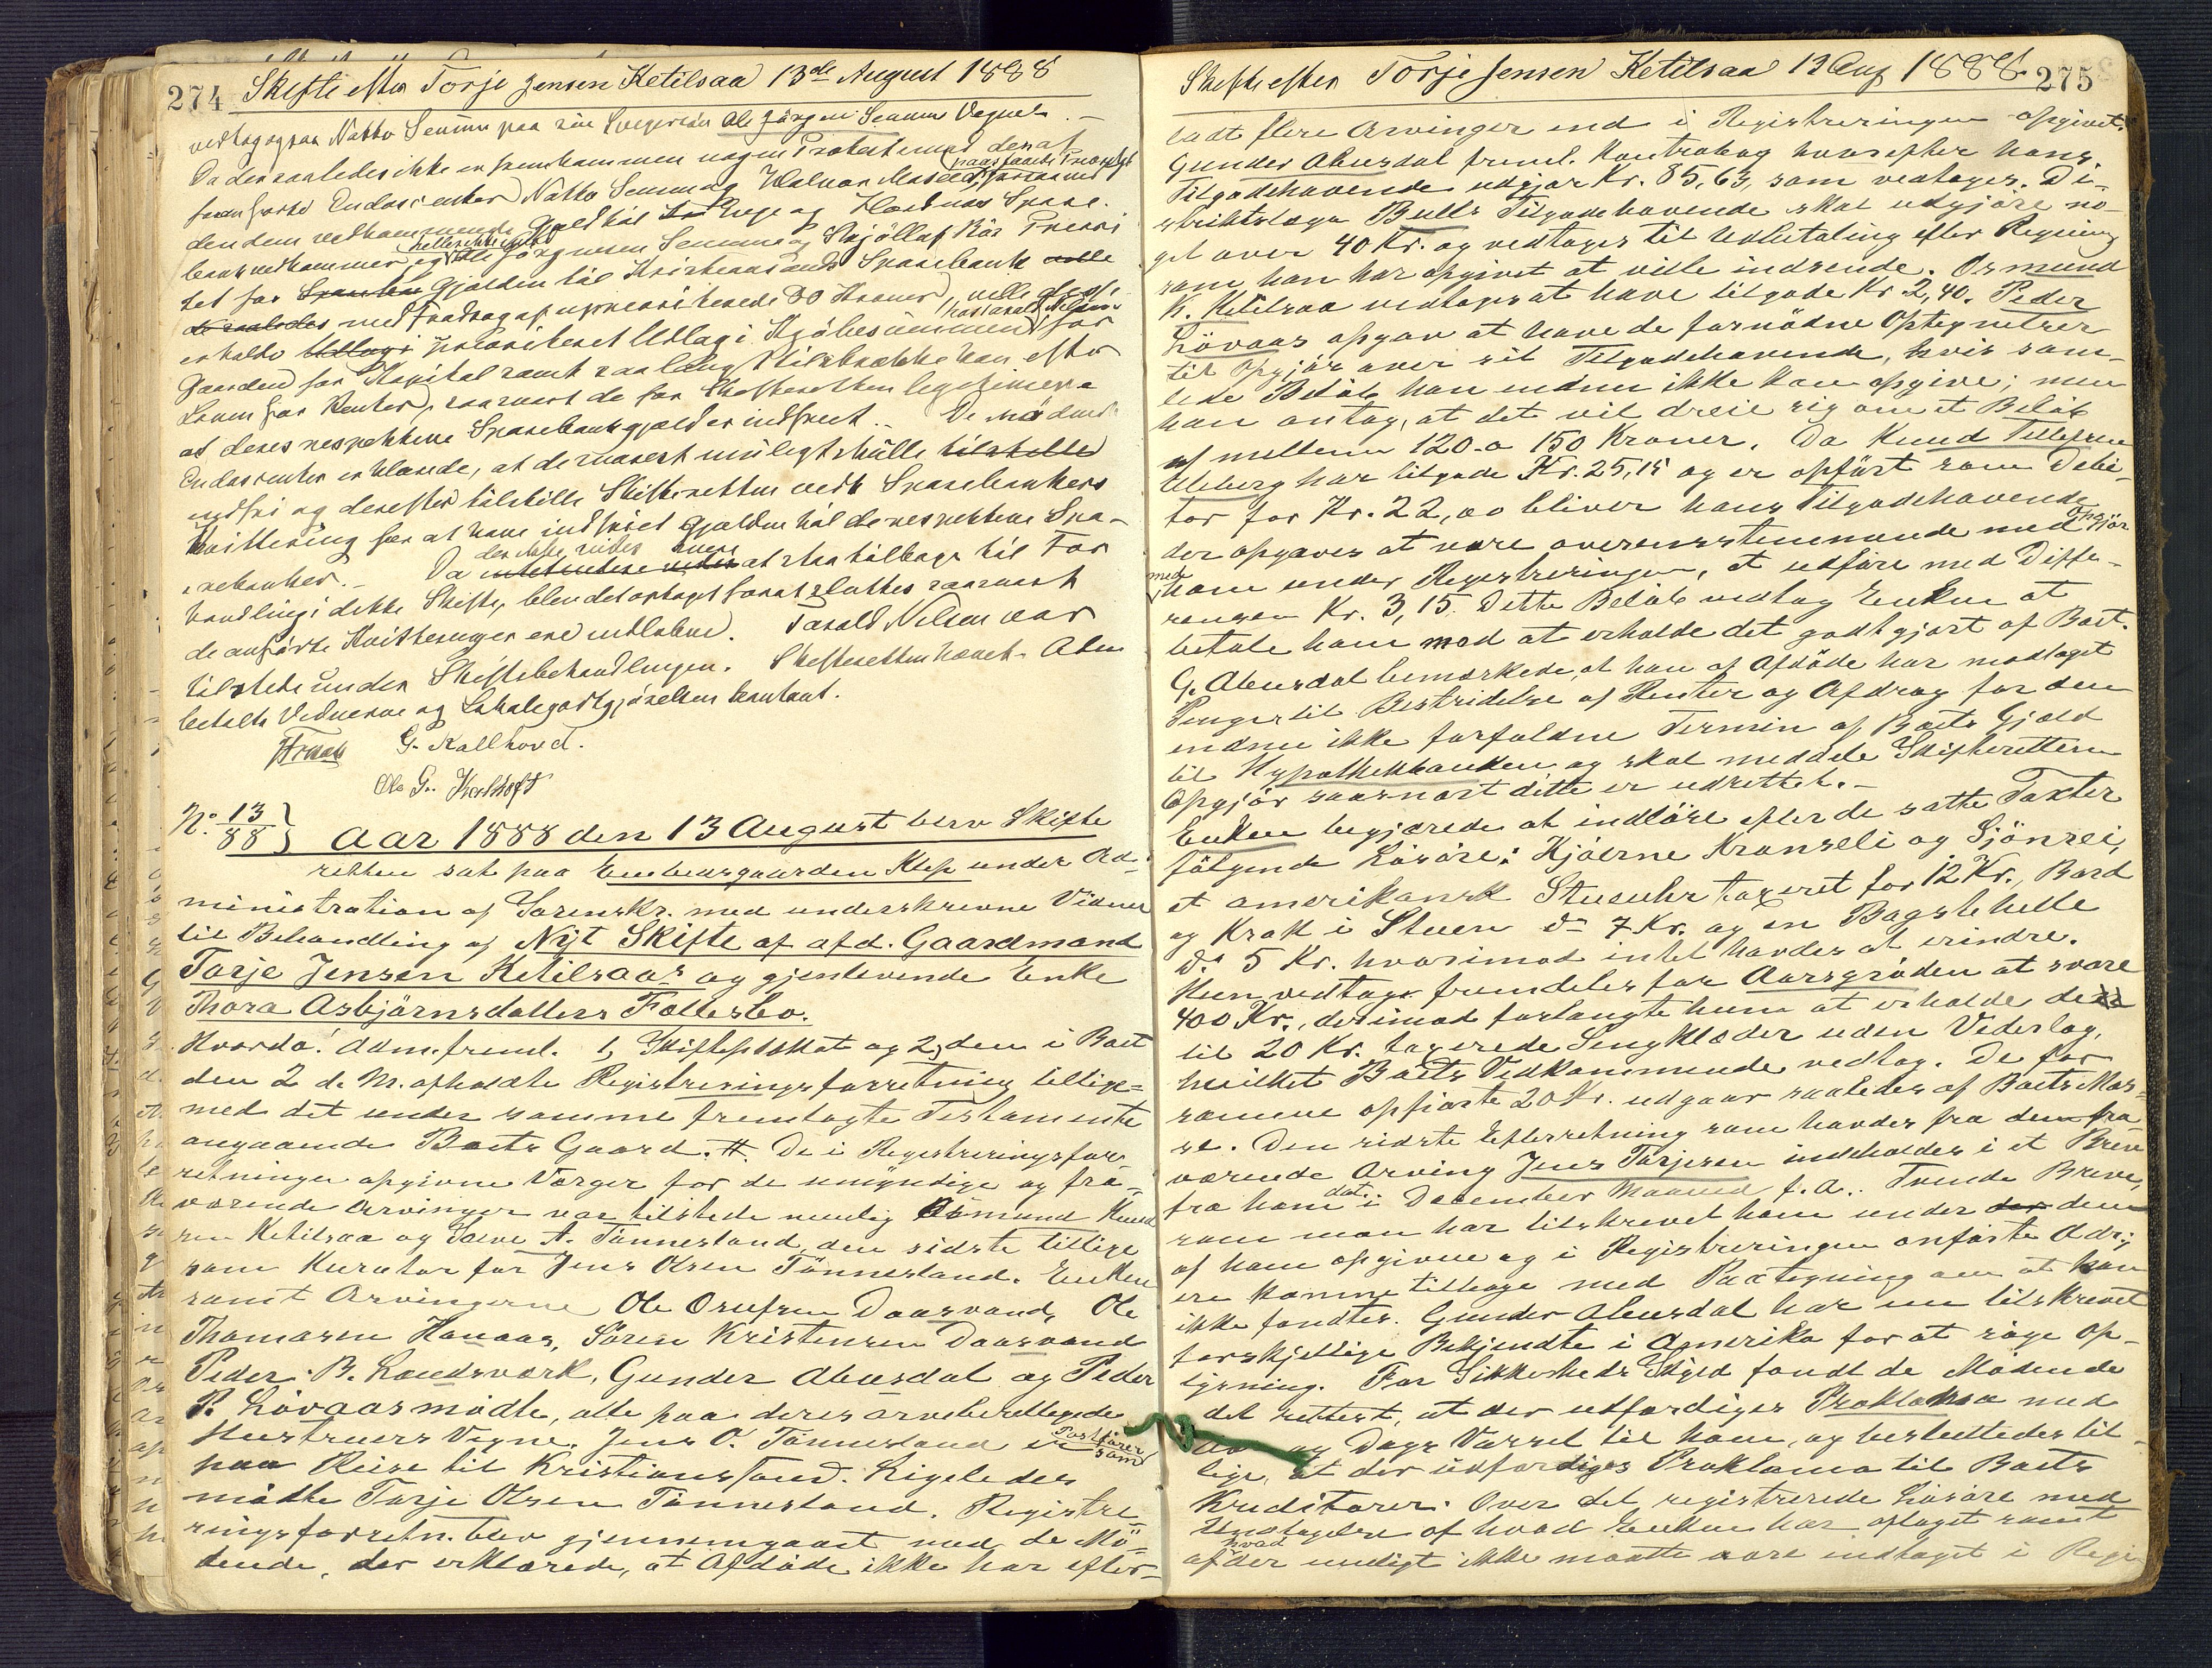 274 Skifte efter Torje Jensen Ketilsaa 13de August 1888
vedtog ogsaa Natto Senum paa sin Ole Jörgen Senum Vegne. –
Da der saaledes ikke er fremkommen nogen Protest mod den af
foran forte Natto Senum og Halvor
den dem vedkommende Gjeld til og Spare.
bank vedkommer, og Ole Jörgensen Senum og
tet for Gjælden til Kristianssands Sparebank
saaledes med Fradrag af 80 Kroner
erholde Udlæg i prioriteret Udlæg i Kjöbesummen for
Gaarden for Kapital samt saa langt tilstrække kan efter
Loven for Renter, saasnart de for Skifteretten legitimere
at deres respektive Sparebankgjæld er indfriet. – De mödende
erklærede, at de snarest muligt skulle tilstille
indfri og derefter tilstille Skifteretten vedk. Sparebankers
Kvittering for at have indfriet Gjælden til de respektive Spa-
rebanker. – Da der ikke vides mere at staa tilbage til For
handling i dette Skifte, blev det optaget for at sluttes saasnart
de anförte Kvitteringer ere indlöbne. Tarald Nilsen var
tilstede under Skiftebehandlingen. Skifteretten hævet. Aten
betalte Vidnerne og Lokalegodtgjörelsen kontant.
G. Kallhovd.
Ole G.
No. 13/88 } Aar 1888 den 13 August blev Skifte
retten sat paa Enkens gaarden Klep under Ad-
ministration af Sorenskr. med underskrevne Vidner
til Behandling af Nyt Skifte af afd. Gaardmand
Torje Jensen Ketilsaas og gjenlevende Enke
Thora Asbjörnsdatters Fællesbo.
Hvorda: Adm. freml. 1, og 2, den i Boet
den 2 d. M. afholdte Registreringsforretning tillige-
med det under samme fremlagte Testamente
angaaende Boets Gaard. #. De i Registreringsfor-
retningen opgivne Værger for de umyndige og fra-
værende Arvinger var tilstede nemlig Asmund Knud
sen Ketilsaa og Salve A. Tönnesland, den sidste tillige
som Kurator for Jens Olsen Tönnesland. Enken
samt Arvingerne Ole Osufsen Daasvand, Ole
Thomasen Hanaas, Sören Kristensen Daasvand
Peder B. Landsverk, Gunder Abusdal og Peder
P. Lövaas mödte, alle paa deres arveberettigede
Hustruers Vegne. Jens O. Tönnesland er Postförer som
paa Reise til Kristianssand. Ligeledes
mödte Torje Olsen Tönnesland. Registre-
ringsforretn. blev gjennemgaaet med de Mö-
dende, der erklærede, at Afdöde ikke har efter-
Skifte efter Torje Jensen Ketilsaa 13 Aug 1888. 275
ladt flere Arvinger end i Registreringen opgivet.
Gunder Abusdal freml. Kontrabog hvorefter hans
Tilgodehavende udgjör Kr. 85,63, som vedtages. Di-
striktslæge Bulls Tilgodehavende skal udgjöre no-
get over 40 Kr. og vedtages til Udbetaling efter Regning
som han har opgivet at ville indsende. Osmund
K. Ketilsaa vedtages at have tilgode Kr 2,40. Peder
Lövaas opgav at have de fornödne Optegnelser
til Opgjör over sit Tilgodehavende, hvis sam-
lede Belöb han endnu ikke kan opgive; men
han antog, at det vil dreie sig om et Belöb
af mellem 120 a 150 Kroner. Da Knud Tellefsen
Ubberg har tilgode Kr. 25,15 og er opfört som Debi-
tor for Kr. 22,00 bliver hans Tilgodehavende
der opgaves at være overensstemmende med Opgjör
med ham under Registreringen, at udföre med Diffe-
rencen Kr. 3,15. Dette Belöb vedtog Enken at
betale ham mod at erholde det godtgjort af Boet.
G. Abusdal bemærkede, at han af Afdöde har modtaget
Penger til Bestridelse af Renter og Afdrag for den
endnu ikke forfaldne Termin af Boets Gjæld
til Hypothekbanken og skal meddele Skifteretten
Opgjör saasnart dette er udrettet. –
Enken begjærede at indlöse efter de satte Taxter
fölgende Lösöre: Kjörne Kranseli og Sjönrei,
et amerikansk Stueuhr taxeret for 12 Kr., Bord
og Krak i Stuen do 7 Kr. og en Bagstehelle
do 5 Kr. hvorimod intet havdes at erindre.
Hun vedtage fremdeles for Aarsgröden at svare
400 Kr., derimod forlangte hun at erholde de
til 20 Kr. taxerede Sengklæder uden Vederlag,
hvilket Boets Vedkommende vedtog. De for
samme opförte 20 Kr. udgaar saaledes af Boets Mas-
se. Den sidste Efterretning som havdes fra den fra-
værende Arving Jens Torjesen indeholdes i et Brev
fra ham dat. i December Maaned f. A.. Tvende Breve,
som man har tilskrevet ham under den
af ham opgivne og i Registreringen anförte Adr.,
ere komne tilbage med Paategning om at han
ikke fandtes. Gunder Abusdal har nu tilskrevet
forskjellige Bekjendte i Amerika for at söge Op-
lysning. For Sikkerheds Skyld fandt de Mödende
det rettest, at der udfærdiges Proklama med
og Dags Varsel til ham, og besluttedes til-
lige, at der udfærdiges Proklama til Boets
Kreditorer. Over det registrerede Lösöre med
Undtagelse af hvad Enken har aftaget samt
af hvad der muligt ikke maatte være indtaget i Regi